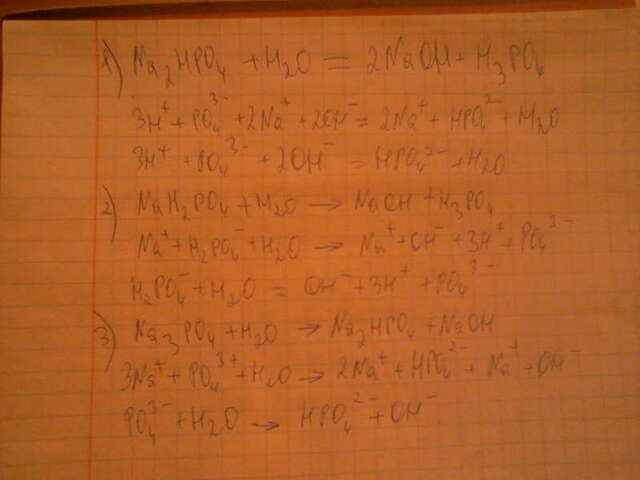 1) Na₂HPO₄ + H₂O = 2NaOH + H₃PO₄
3H⁺ + PO₄³⁻ + 2Na⁺ + 2OH⁻ = 2Na⁺ + HPO₄²⁻ + H₂O
3H⁺ + PO₄³⁻ + 2OH⁻ = HPO₄²⁻ + H₂O
2) NaH₂PO₄ + H₂O → NaOH + H₃PO₄
Na⁺ + H₂PO₄⁻ + H₂O → Na⁺ + OH⁻ + 3H⁺ + PO₄³⁻
H₂PO₄⁻ + H₂O = OH⁻ + 3H⁺ + PO₄³⁻
3) Na₃PO₄ + H₂O → Na₂HPO₄ + NaOH
3Na⁺ + PO₄³⁺ + H₂O → 2Na⁺ + HPO₄²⁻ + Na⁺ + OH⁻
PO₄³⁻ + H₂O → HPO₄²⁻ + OH⁻.